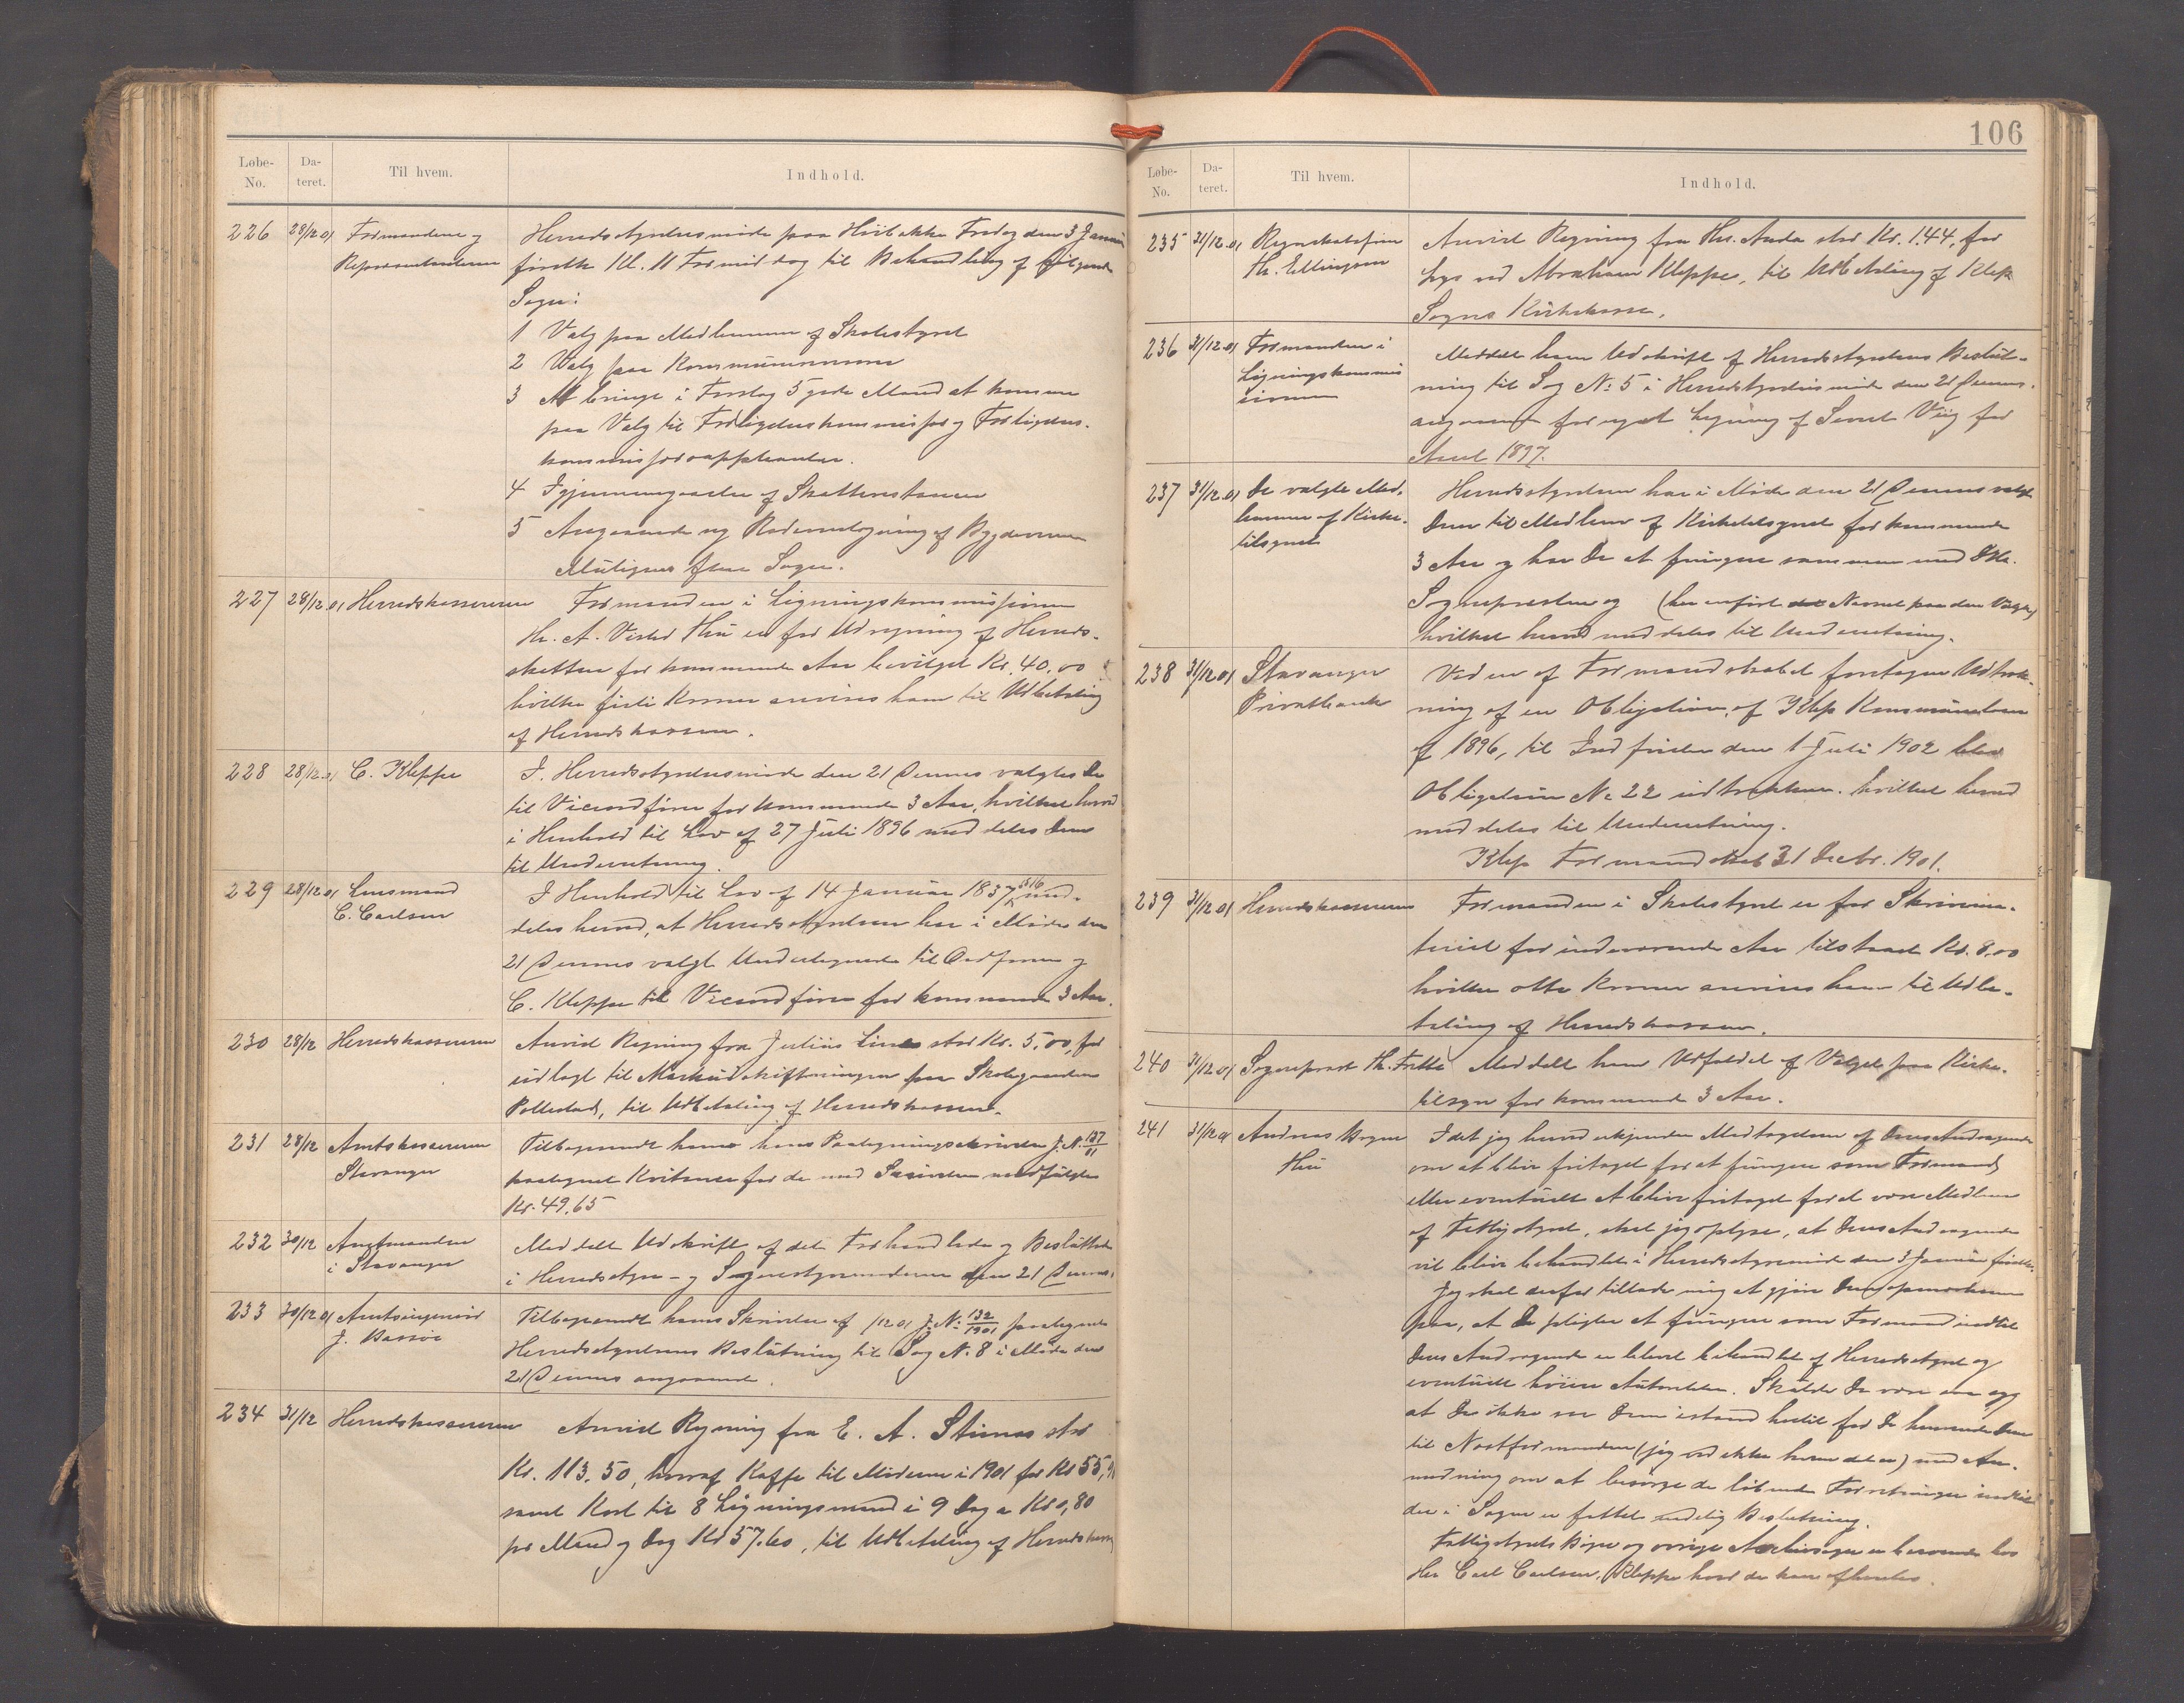 Løbe-No. Dateret. Til hvem. Indhold.
226 28/12 01 Formændene og Repræsentanterne
Herredsstyrelsesmøde paa Hvilukka Fredag den 3 Januar
førstk. Kl. 11 Formiddag til Behandling af følgende
Sager:
1 Valg paa Medlemmer af Skolestyret
2 Valg paa
3 At bringe i Forslag 5 gode Mænd at komme
paa Valg til Forligelseskommissær og Forligelses-
kommissærsuppleanter.
4 Igjennemgaaelse af Skatterestancer
5 Angaaende ny Rodeomlægning af Bygdeveiene
Muligens flere Sager.
227 28/12 01 Herredskassereren
Formanden i Ligningskommissionen
Hr. A. Visted Hui er for Udregning af Herreds-
skatten for kommende Aar bevilget Kr. 40,00
hvilke førti Kroner anvises ham til Udbetaling
af Herredskassen.
228 28/12 01 C. Kleppe
I Herredsstyrelsesmøde den 21 Dennes valgtes De
til Viceordfører for kommende 3 Aar, hvilket herved
i Henhold til Lov af 27 Juli 1896 meddeles Dem
til Underretning.
229 28/12 01 Lensmand C. Carlsen
I Henhold til Lov af 14 Januar 1837 § 16 med-
deles herved, at Herredsstyrelsen har i Møde den
21 Dennes valgt Undertegnede til Ordfører og
C. Kleppe til Viceordfører for kommende 3 Aar.
230 28/12 Herredskassereren
Anvist Regning fra Julius Line stor Kr. 5,00, for
udlagt til Markudskiftningen paa Skolegaarden
Pollestad, til Udbetaling af Herredskassen.
231 28/12 Amtskassereren Stavanger
Tilbagesendt ham hans Paategningsskrivelse J.N. 137/01
paategnet Kvittance for de med Skrivelsen medfulgte
Kr. 49,65
232 30/12 Amtmanden i Stavanger
Meddelt Udskrift af det Forhandlede og Besluttede
i Herredsstyre- og Sognestyremøderne den 21 Dennes.
233 30/12 01 Amtsingeniør J. Bassøe
Tilbagesendt hans Skrivelse af /12 01 J.No. 132/1901 paategnet
Herredsstyrelsens Beslutning til Sag N. 8 i Møde den
21 Dennes angaaende.
234 31/12 Herredskassereren
Anvist Regning fra E. A. Stimes stor
Kr. 113.50, hvoraf Kaffe til Møderne i 1901 for Kr 55,90
samt Kost til 8 Ligningsmænd i 9 Dag a Kr 0,80
pr Mand og Dag Kr 57.60, til Udbetaling af Herredskassen
106
Løbe-No. Dateret. Til hvem. Indhold.
235 31/12 01 Regnskabsfører Th. Ellingsen
Anvist Regning fra Hr. Anda stor Kr. 1.44, for
Lys ved Abraham Kleppe, til Udbetaling af Klep
Sogns Kirkekasse.
236 31/12 01 Formanden i Ligningskommissionen
Meddelt ham Udskrift af Herredsstyrelsens Beslut-
ning til Sag No 5 i Herredsstyrelsesmøde den 21 Dennes.
angaaende fornyet Ligning af Sivert Viig for
Aaret 1897.
237 31/12 01 De valgte Medlemmer af Kirketilsynet
Herredsstyrelsen har i Møde den 21 Dennes valgt
Dem til Medlem af Kirketilsynet for kommende
3 Aar og har De at fungere sammen med DHr.
Sognepresten og (her anført Navnet paa den Valgte)
hvilket herved meddeles til Underretning.
238 31/12 01 Stavanger Privatbank
Ved en af Formandskabet foretagen Udtræk-
ning af en Obligation af Klep Kommunelaan
af 1896, til Indfrielse den 1 Juli 1902 blev
Obligation No 22 udtrukken. hvilket herved
meddeles til Underretning.
Klep Formandskab 31 Decbr. 1901.
239 31/12 01 Herredskassereren
Formanden i Skolestyret er for Skrivema-
teriel for indeværende Aar tilstaaet Kr. 8.00
hvilke otte Kroner anvises ham til Udbe-
taling af Herredskassen.
240 31/12 01 Sogneprest Th.
Meddelt ham Udfaldet af Valget paa Kirke-
tilsyn for kommende 3 Aar.
241 31/12 01 Andreas Bryne Hui
Idet jeg herved erkjender Modtagelsen af Deres Andragende
om at blive fritaget for at fungere som Formand
eller eventuelt at blive fritaget for at være Medlem
af Fattigstyret, skal jeg oplyse, at Deres Andragende
vil blive behandlet i Herredsstyremøde den 3 Januar førstk.
Jeg skal derfor tillade mig at gjøre Dem opmerksom
paa, at De pligter at fungere som Formand indtil
Deres Andragende er blevet behandlet af Herredsstyret og
eventuelt høiere Autoriteter. Skulde De være
at De ikke ser Dem istand hertil faar De henvende Dem
til Næstformanden (jeg ved ikke hvem det er) med An-
modning om at besørge de løbende Forretninger indtil
der i Sagen er fattet endelig Beslutning.
Fattigstyrets Bøger og øvrige Arkivsager er beroende hos
Hr. Carl Carlsen, Kleppe hvor de kan afhentes.